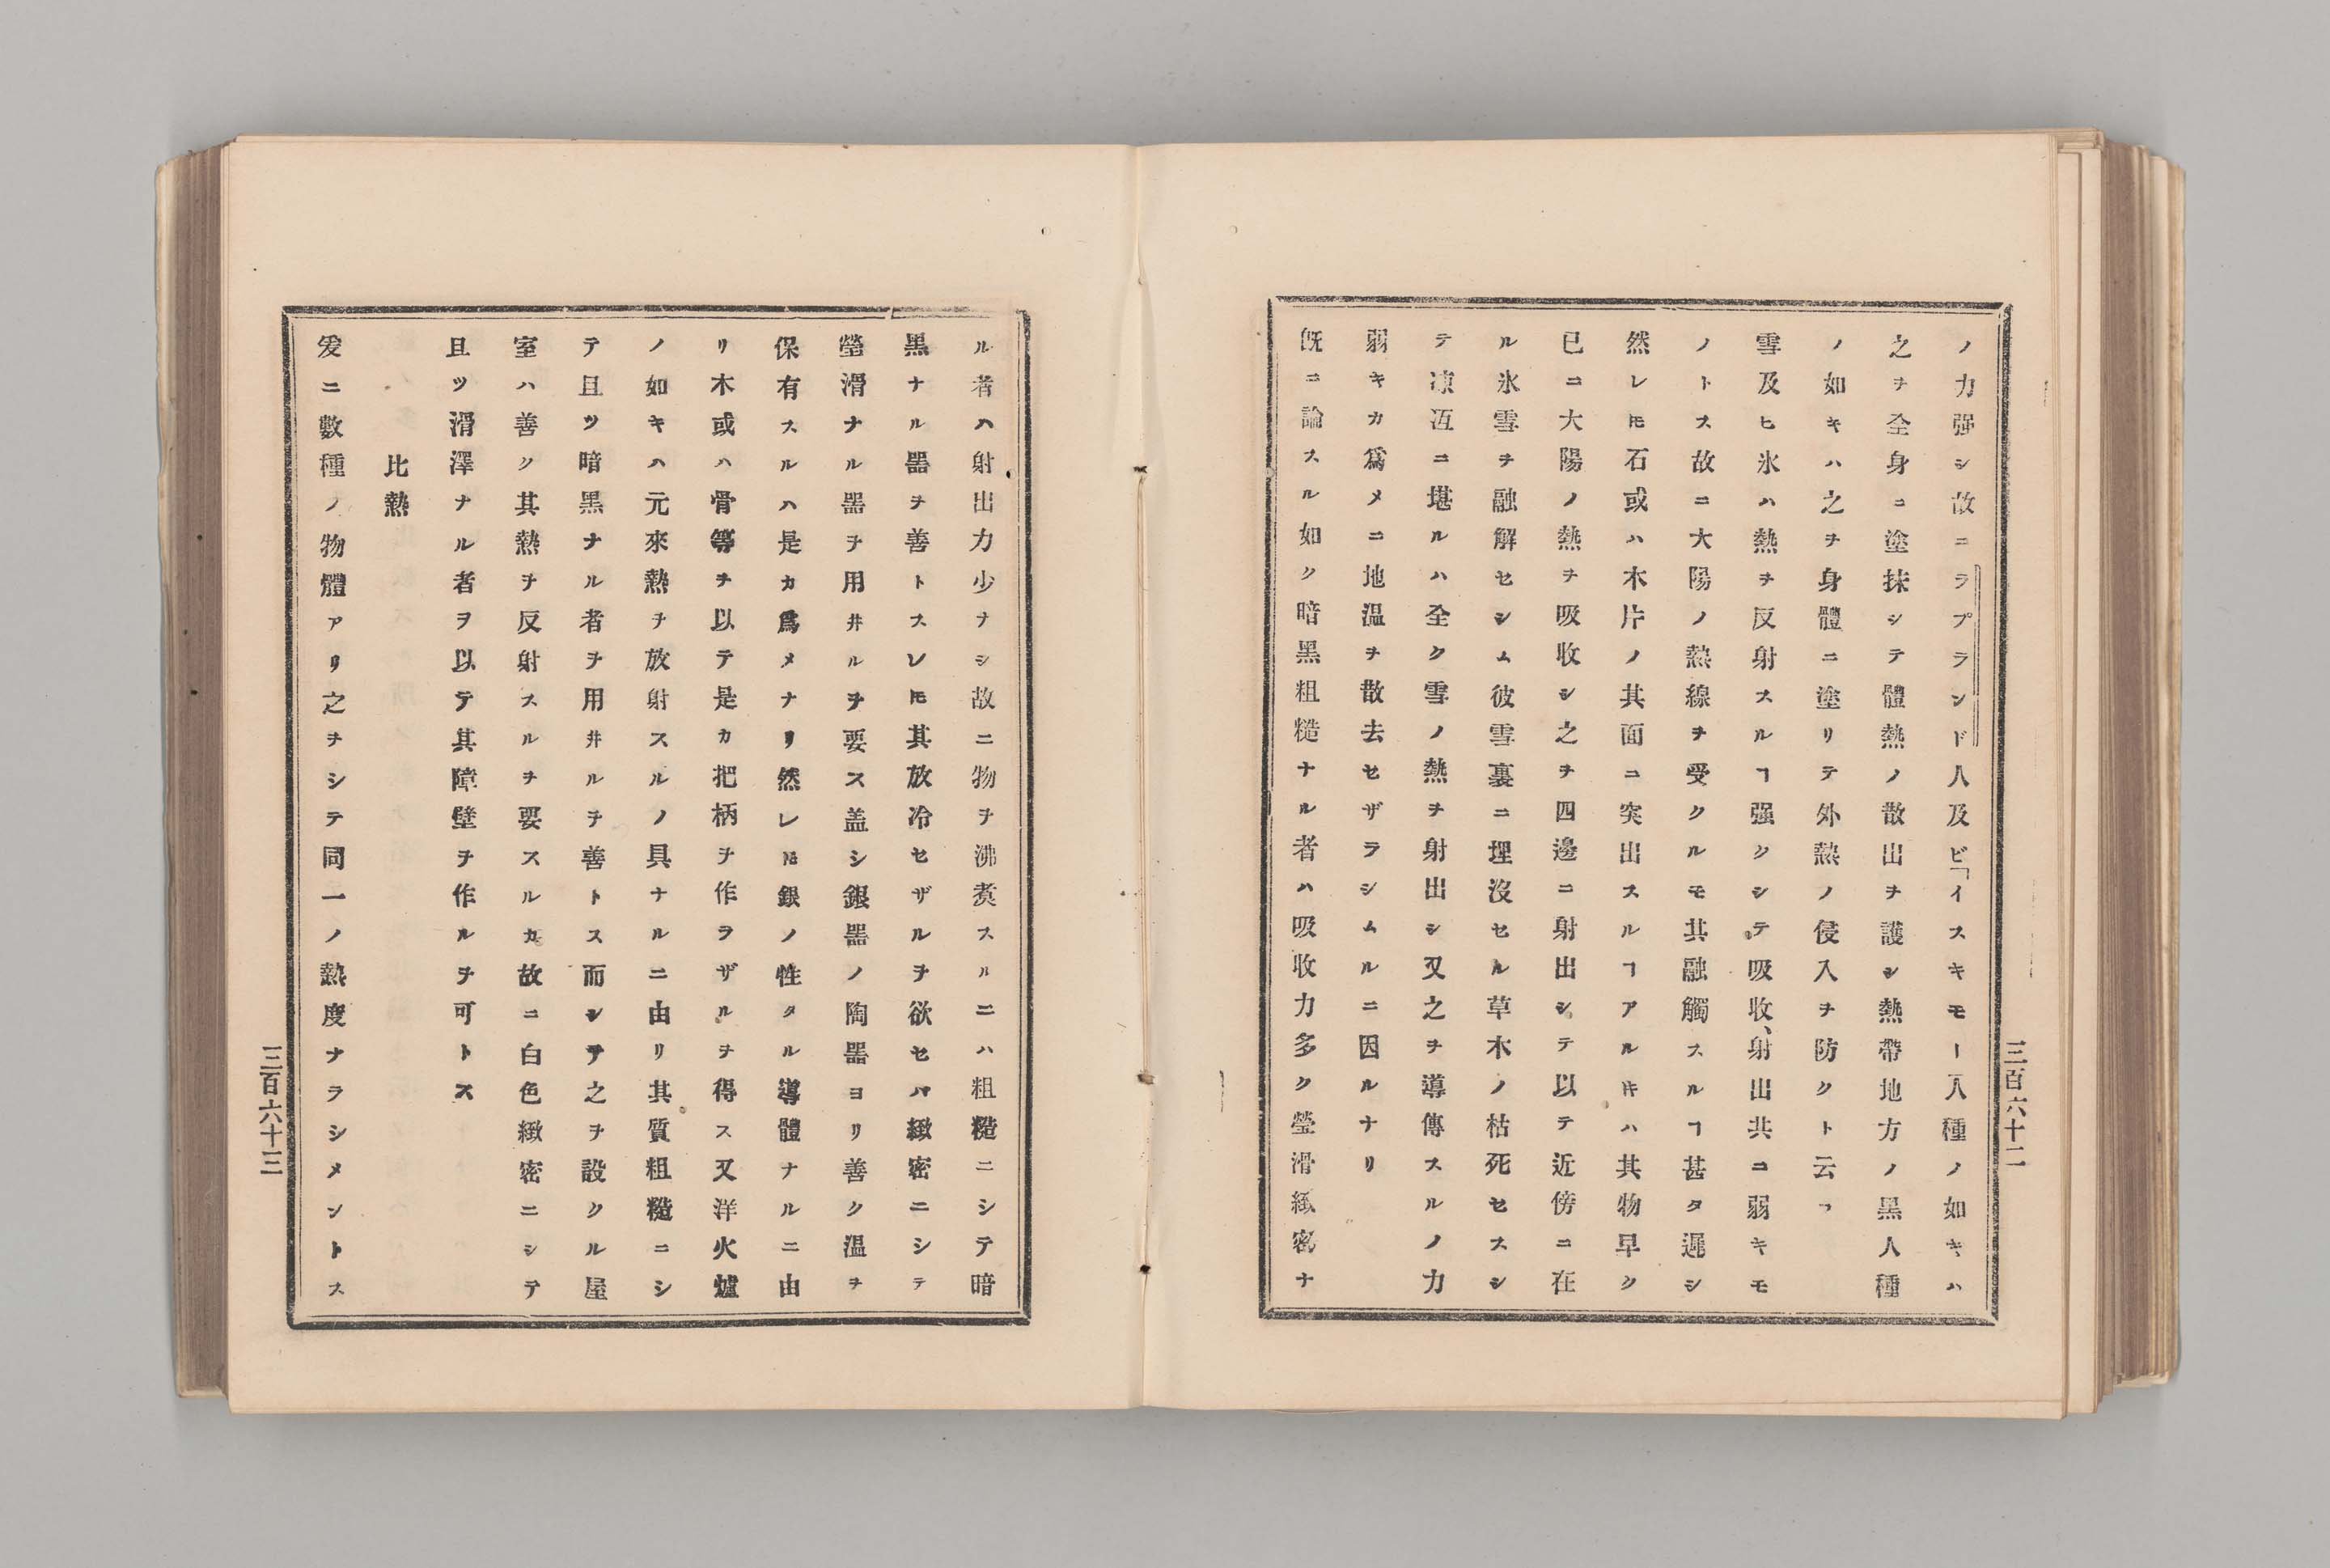 ノ力强シ故ニラプランド人及ビ「イスキモー人種ノ如キハ
之ヲ全身ニ塗抹シテ體熱ノ散出ヲ護シ熱帶地方ノ黑人種
ノ如キハ之ヲ身體ニ塗リテ外熱ノ侵入ヲ防クト云フ
雪及ヒ氷ハ熱ヲ反射スルヿ强クシテ吸收、射出共ニ弱キモ
ノトス故ニ大陽ノ熱線ヲ受クルモ其融觸スルヿ甚タ遲シ
然レ𪜈石或ハ木片ノ其面ニ突出スルヿアルキハ其物早ク
已ニ大陽ノ熱ヲ吸收シ之ヲ四邊ニ射出シテ以テ近傍ニ在
ル氷雪ヲ融解セシム彼雪裏ニ埋沒セル草木ノ枯死セスシ
テ凍冱ニ堪ルハ全ク雪ノ熱ヲ射出シ又之ヲ導傳スルノ力
弱キカ爲メニ地温ヲ散去セザラシムルニ因ルナリ
旣ニ論スル如ク暗黑粗糙ナル者ハ吸收力多ク瑩滑緻密ナ
三百六十二
ル者ハ射出力少ナシ故ニ物ヲ沸煑スルニハ粗糙ニシテ暗
黑ナル器ヲ善トスレ𪜈其放冷セザルヲ欲セハ緻密ニシテ
瑩滑ナル器ヲ用井ルヲ要ス盖シ銀器ノ陶器ヨリ善ク温ヲ
保有スルハ是カ爲メナリ然レ𪜈銀ノ性タル導體ナルニ由
リ木或ハ骨等ヲ以テ是カ把柄ヲ作ラザルヲ得ス又洋火爐
ノ如キハ元來熱ヲ放射スルノ具ナルニ由リ其質粗糙ニシ
テ且ツ暗黑ナル者ヲ用井ルヲ善トス而シテ之ヲ設クル屋
室ハ善ク其熱ヲ反射スルヲ要スルカ故ニ白色緻密ニシテ
且ツ滑澤ナル者ヲ以テ其障壁ヲ作ルヲ可トス
比熱
爰ニ數種ノ物體アリ之ヲシテ同一ノ熱度ナラシメントス
三百六十三